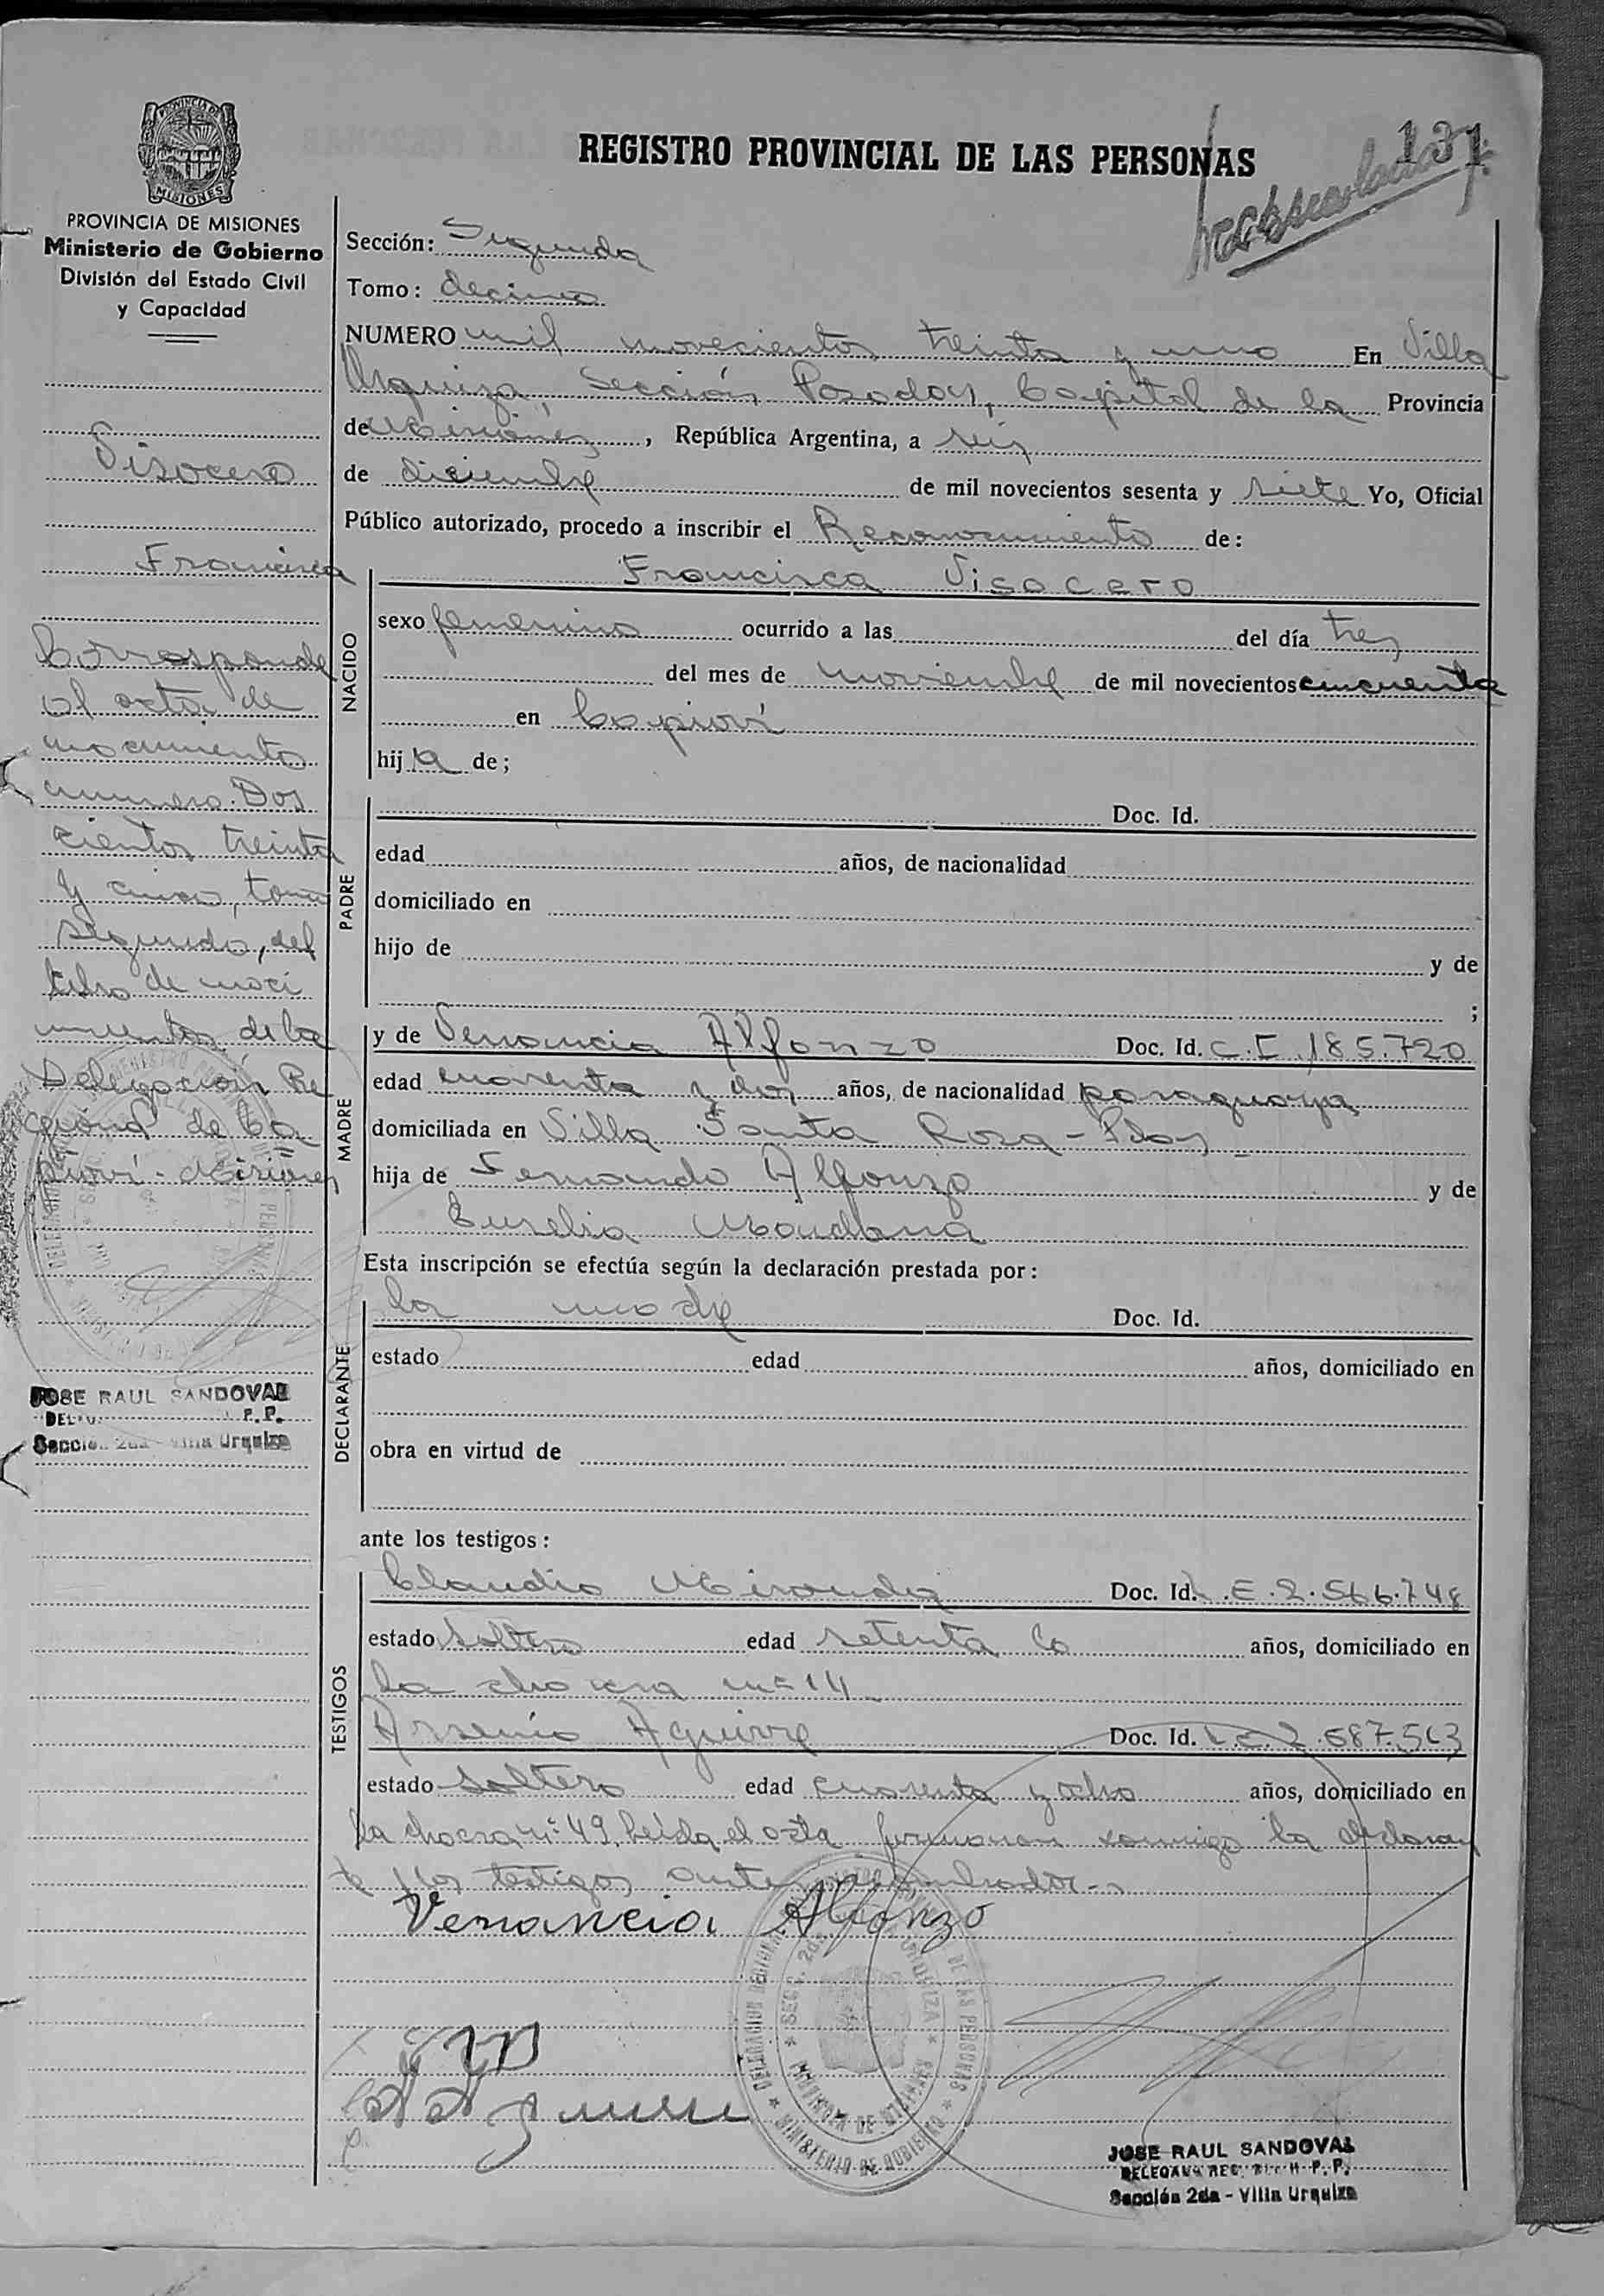 REGISTRO PROVINCIAL DE LAS PERSONAS
131
PROVINCIA DE MISIONES
Ministerio de Gobierno
División del Estado Civil
y Capacidad
Visocero
Francisca
Corresponde
al acta de
nacimiento
numero Dos
cientos treinta
y cinco, tomo
segundo, del
libro de naci
mientos de la
Delegación Re
gional de Ca
piovi - Misiones
JOSE RAUL SANDOVAL
P. P.
Sección 2da - Villa Urquiza
Sección: Segunda
Tomo: decimo
NUMERO mil novecientos treinta y uno En Villa
Urquiza, Sección Posadas, Capital de la Provincia
de Misiones, República Argentina, a seis
de diciembre de mil novecientos sesenta y siete Yo, Oficial
Público autorizado, procedo a inscribir el Reconocimiento de:
NACIDO
Francisca Visocero
sexo femenino ocurrido a las del día tres
del mes de noviembre de mil novecientos cincuenta
en Capiovi
hij a de;
PADRE
Doc. Id.
edad años, de nacionalidad
domiciliado en
hijo de y de
;
MADRE
y de Venancia Alfonzo Doc. Id. C.I. 185.720
edad cuarenta y dos años, de nacionalidad paraguaya
domiciliada en Villa Santa Rosa - Pdas
hija de Fernando Alfonzo y de
Aurelia Maudana
Esta inscripción se efectúa según la declaración prestada por:
DECLARANTE
la madre Doc. Id.
estado edad años, domiciliado en
obra en virtud de
ante los testigos:
TESTIGOS
Claudio Miranda Doc. Id. L.E. 2.566.748
estado soltero edad setenta años, domiciliado en
la chacra nº 14
Arsenio Aguirre Doc. Id. L.E. 2.687.513
estado soltero edad cuarenta y ocho años, domiciliado en
la chacra nº 49. Leida el acta firmaron conmigo la declaran
te y los testigos antes nombrados.-
Venancia Alfonzo
JOSE RAUL SANDOVAL
P. P.
Sección 2da - Villa Urquiza